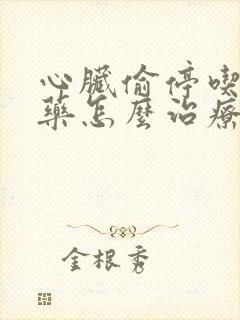 心臟偷停喫
藥怎麼治療
金根秀